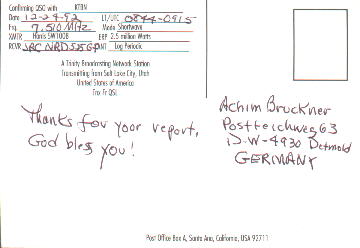 Confirming QSO with KTBN
Date 12-29-92 LT/UTC 0844-0915
Frq 7.510 MHz Mode Shortwave
XMTR Harris SW100B ERP 2.5 million Watts
RCVR JRC NRD 525G ANT Log Periodic
A Trinity Broadcasting Network Station
Transmitting from Salt Lake City, Utah
United States of America
Tnx Fr QSL
Thanks for your report,
God bless you!
Achim Bruckner
Postteichweg 63
D-W-4930 Detmold
GERMANY
Post Office Box A, Santa Ana, California, USA 92711